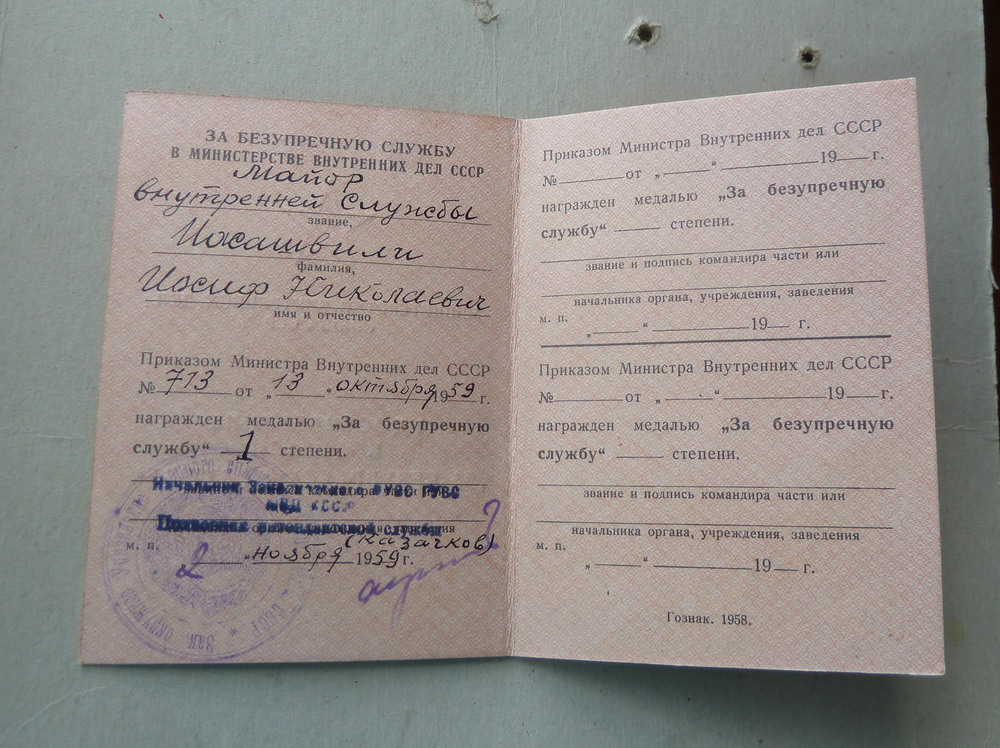 ЗА БЕЗУПРЕЧНУЮ СЛУЖБУ
В МИНИСТЕРСТВЕ ВНУТРЕННИХ ДЕЛ СССР
Майор
внутренней Службы
звание,
Иокашвили
фамилия,
Иосиф Николаевич
имя и отчество
Приказом Министра Внутренних дел СССР
№ 713 от „ 13 “ октября 1959 г.
награжден медалью „За безупречную
службу“ 1 степени.
Начальник УВС ГУВС
МВД СССР
службы
(Казачков)
м. п. „ 2 “ ноября 1959 г.
Приказом Министра Внутренних дел СССР
№ от „ “ 19 г.
награжден медалью „За безупречную
службу“ степени.
звание и подпись командира части или
начальника органа, учреждения, заведения
м. п.
„ “ 19 г.
Приказом Министра Внутренних дел СССР
№ от „ “ 19 г.
награжден медалью „За безупречную
службу“ степени.
звание и подпись командира части или
начальника органа, учреждения, заведения
м. п.
„ “ 19 г.
Гознак. 1958.